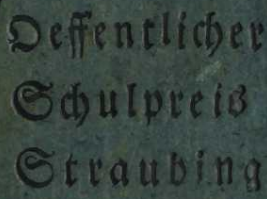 Oeffentlicher
Schulpreis
Straubing